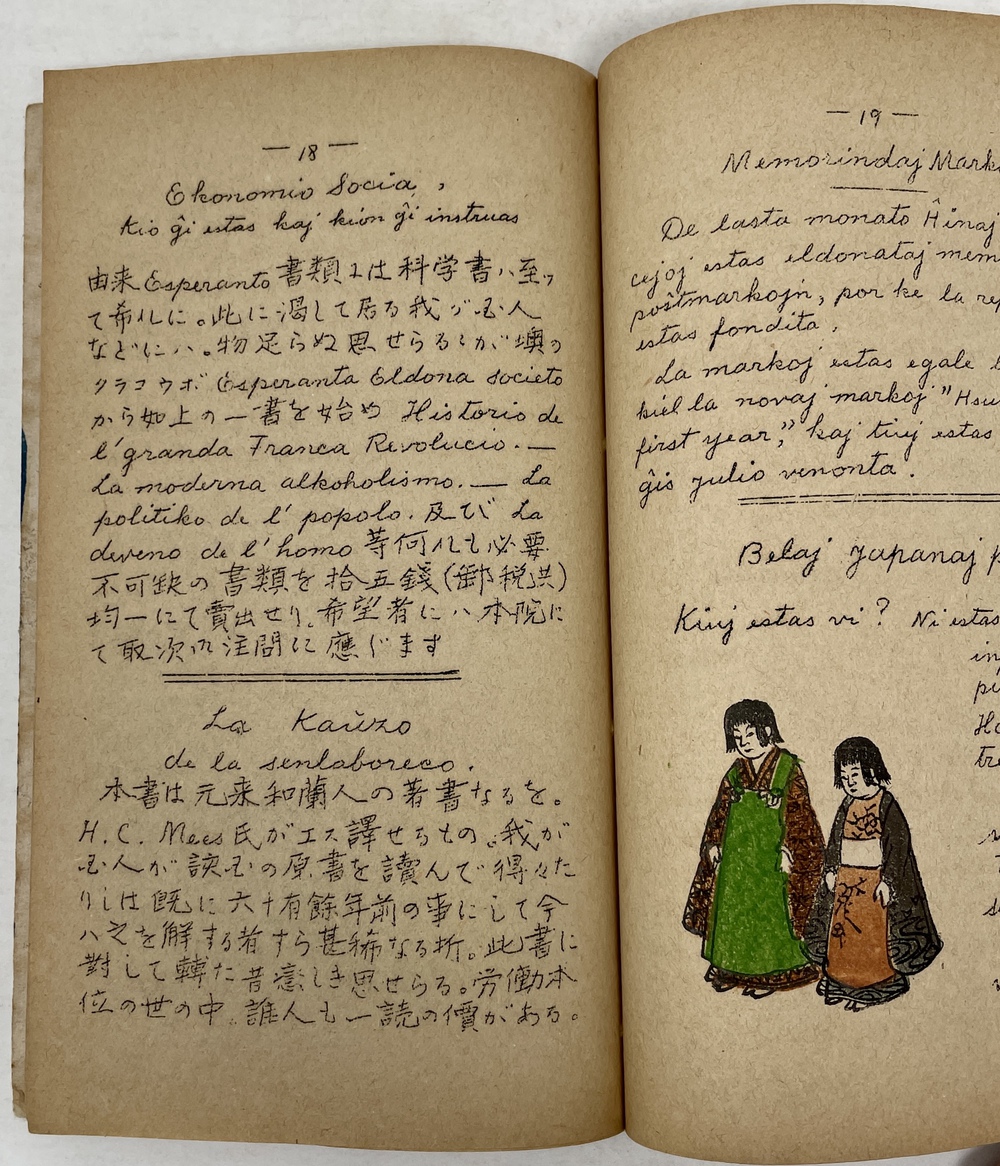 — 18 —
Ekonomio Socia,
Kio ĝi estas kaj kion ĝi instruas
由来 Esperanto 書類には科学書ハ至ッ
て希れに。此に渇して居る我が邦人
などにハ。物足らぬ思せらるゝが墺の
クラコウボ Esperanta Eldona Societo
から如上の一書を始め Historio de
l' granda Franca Revolucio. —
La moderna alkoholismo. — La
politiko de l' popolo. 及び La
deveno de l' homo 等何れも必要
不可缺の書類を拾五錢(郵税共)
均一にて賣出せり。希望者にハ本院に
て取次の注問に應じます
La Kaŭzo
de la senlaboreco.
本書は元来和蘭人の著書なるを。
H. C. Mees 氏がエス譯せるもの。我が
邦人が 訳の原書を讀んで得々た
りしは既に六十有餘年前の事にして今
ハ之を解する者すら甚稀なる折。此書に
對して轉た昔戀しき思せらる。労働本
位の世の中 誰人も一読の價がある。
— 19 —
Memorindaj Mark
De lasta monato Ĥinaj
cejoj estas eldonataj mem
poŝtmarkojn, por ke la rep
estas fondita.
La markoj estas egale
kiel la novaj markoj "Hsu
first year," kaj tiuj estas
ĝis julio venonta.
Belaj Japanaj p
Kiuj estas vi? Ni estas
in
pu
Ha
tre